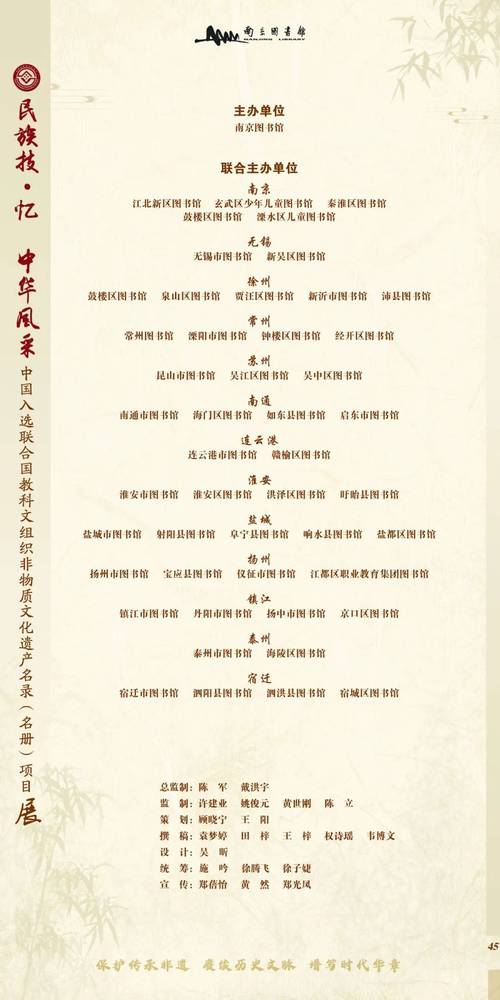 南京图书馆
NANJING LIBRARY
民族技·忆 中华风采
中国入选联合国教科文组织非物质文化遗产名录（名册）项目展
主办单位
南京图书馆
联合主办单位
南京
江北新区图书馆 玄武区少年儿童图书馆 秦淮区图书馆
鼓楼区图书馆 溧水区儿童图书馆
无锡
无锡市图书馆 新吴区图书馆
徐州
鼓楼区图书馆 泉山区图书馆 贾汪区图书馆 新沂市图书馆 沛县图书馆
常州
常州图书馆 溧阳市图书馆 钟楼区图书馆 经开区图书馆
苏州
昆山市图书馆 吴江区图书馆 吴中区图书馆
南通
南通市图书馆 海门区图书馆 如东县图书馆 启东市图书馆
连云港
连云港市图书馆 赣榆区图书馆
淮安
淮安市图书馆 淮安区图书馆 洪泽区图书馆 盱眙县图书馆
盐城
盐城市图书馆 射阳县图书馆 阜宁县图书馆 响水县图书馆 盐都区图书馆
扬州
扬州市图书馆 宝应县图书馆 仪征市图书馆 江都区职业教育集团图书馆
镇江
镇江市图书馆 丹阳市图书馆 扬中市图书馆 京口区图书馆
泰州
泰州市图书馆 海陵区图书馆
宿迁
宿迁市图书馆 泗阳县图书馆 泗洪县图书馆 宿城区图书馆
总监制：陈 军 戴洪宇
监 制：许建业 姚俊元 黄世刚 陈 立
策 划：顾晓宇 王 阳
撰 稿：袁梦婷 田 梓 王 梓 权诗瑶 韦博文
设 计：吴 昕
统 筹：施 吟 徐腾飞 徐子婕
宣 传：郑蓓怡 黄 然 郑光凤
45
保护传承非遗 赓续历史文脉 谱写时代华章